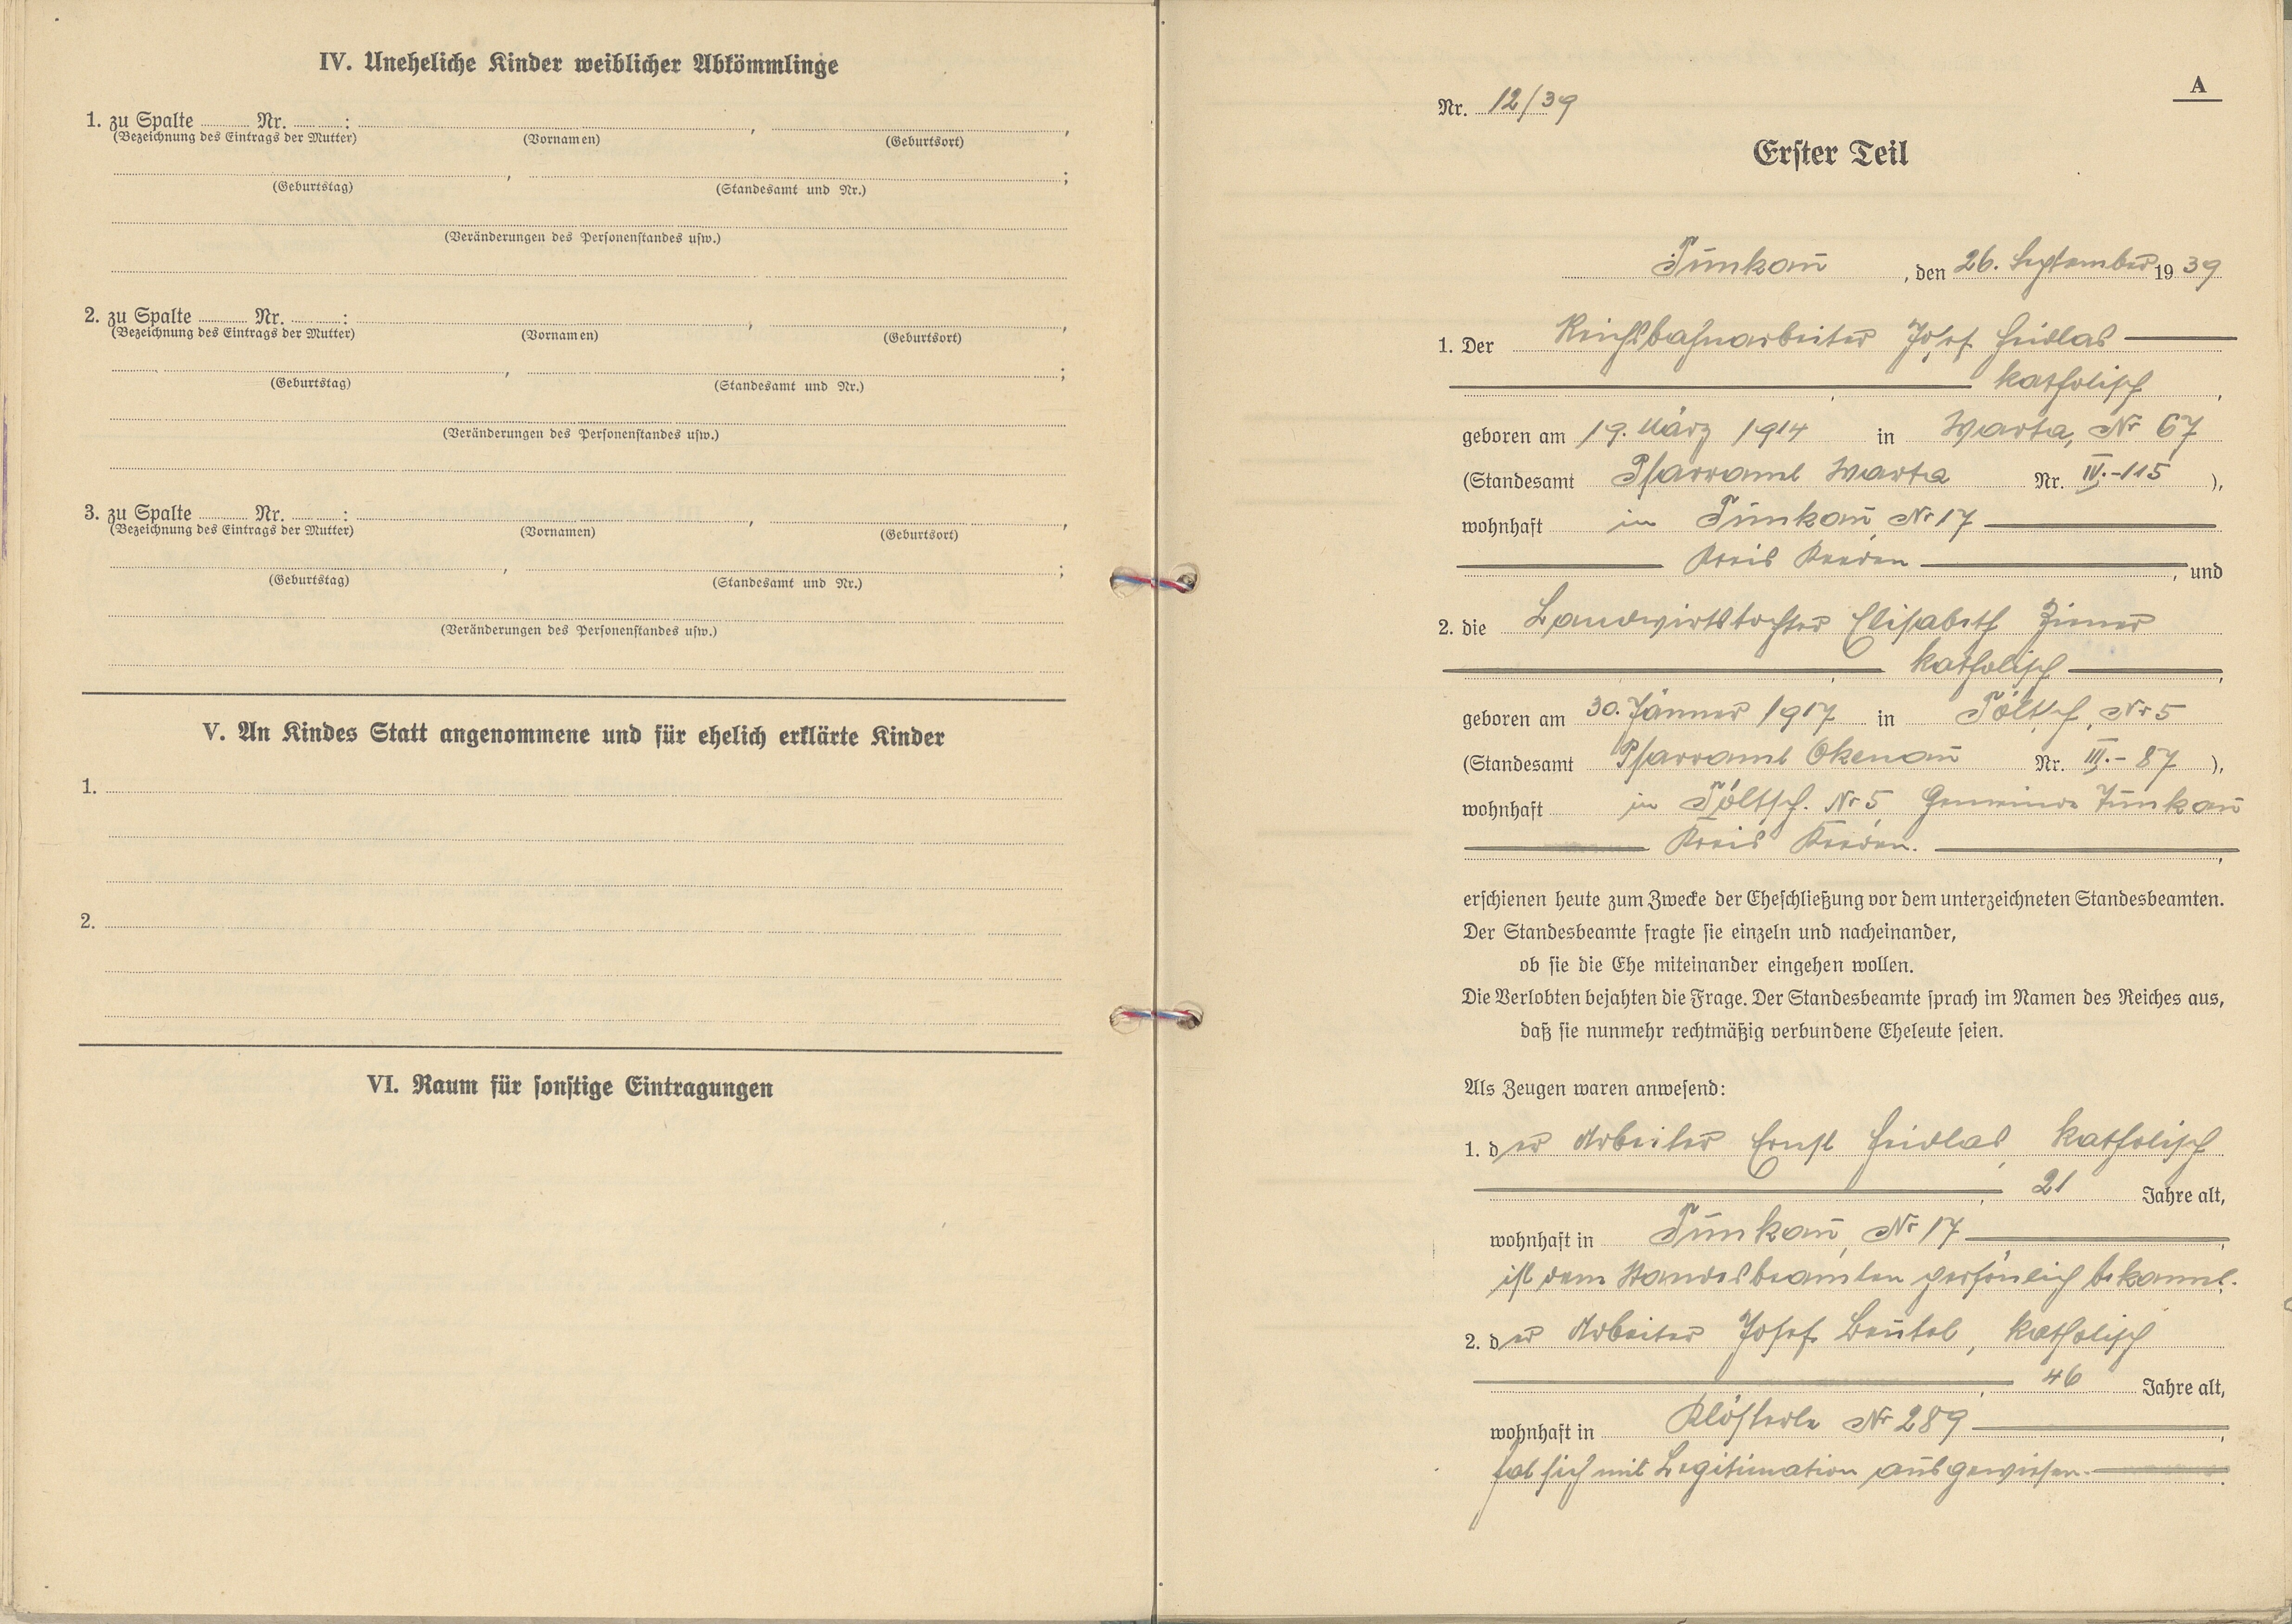 IV. Uneheliche Kinder weiblicher Abkömmlinge
1. zu Spalte ........ Nr. ........ :
(Bezeichnung des Eintrags der Mutter) (Vornamen) , (Geburtsort) ,
(Geburtstag) , (Standesamt und Nr.) ;
(Veränderungen des Personenstandes usw.)
2. zu Spalte ........ Nr. ........ :
(Bezeichnung des Eintrags der Mutter) (Vornamen) , (Geburtsort) ,
(Geburtstag) , (Standesamt und Nr.) ;
(Veränderungen des Personenstandes usw.)
3. zu Spalte ........ Nr. ........ :
(Bezeichnung des Eintrags der Mutter) (Vornamen) , (Geburtsort) ,
(Geburtstag) , (Standesamt und Nr.) ;
(Veränderungen des Personenstandes usw.)
V. An Kindes Statt angenommene und für ehelich erklärte Kinder
1.
2.
VI. Raum für sonstige Eintragungen
A
Nr. 12/39
Erster Teil
Tunkau, den 26. September 1939
1. Der Reichsbahnarbeiter Josef Heidlas
katholisch,
geboren am 19. März 1914 in Warta, Nr 67
(Standesamt Pfarramt Warta Nr. IV.-115 ),
wohnhaft in Tunkau, Nr 17
Kreis Kaaden, und
2. die Landwirtstochter Elisabeth Ziener
katholisch,
geboren am 30. Jänner 1917 in Töltsch, Nr 5
(Standesamt Pfarramt Okenau Nr. III.-87 ),
wohnhaft in Töltsch. Nr 5, Gemeinde Tunkau
Kreis Kaaden.
erschienen heute zum Zwecke der Eheschließung vor dem unterzeichneten Standesbeamten.
Der Standesbeamte fragte sie einzeln und nacheinander,
ob sie die Ehe miteinander eingehen wollen.
Die Verlobten bejahten die Frage. Der Standesbeamte sprach im Namen des Reiches aus,
daß sie nunmehr rechtmäßig verbundene Eheleute seien.
Als Zeugen waren anwesend:
1. der Arbeiter Ernst Heidlas, katholisch
21 Jahre alt,
wohnhaft in Tunkau, Nr 17,
ist dem Standesbeamten persönlich bekannt.
2. der Arbeiter Josef Beutel, katholisch
46 Jahre alt,
wohnhaft in Klösterle Nr 289,
hat sich mit Legitimation ausgewiesen.